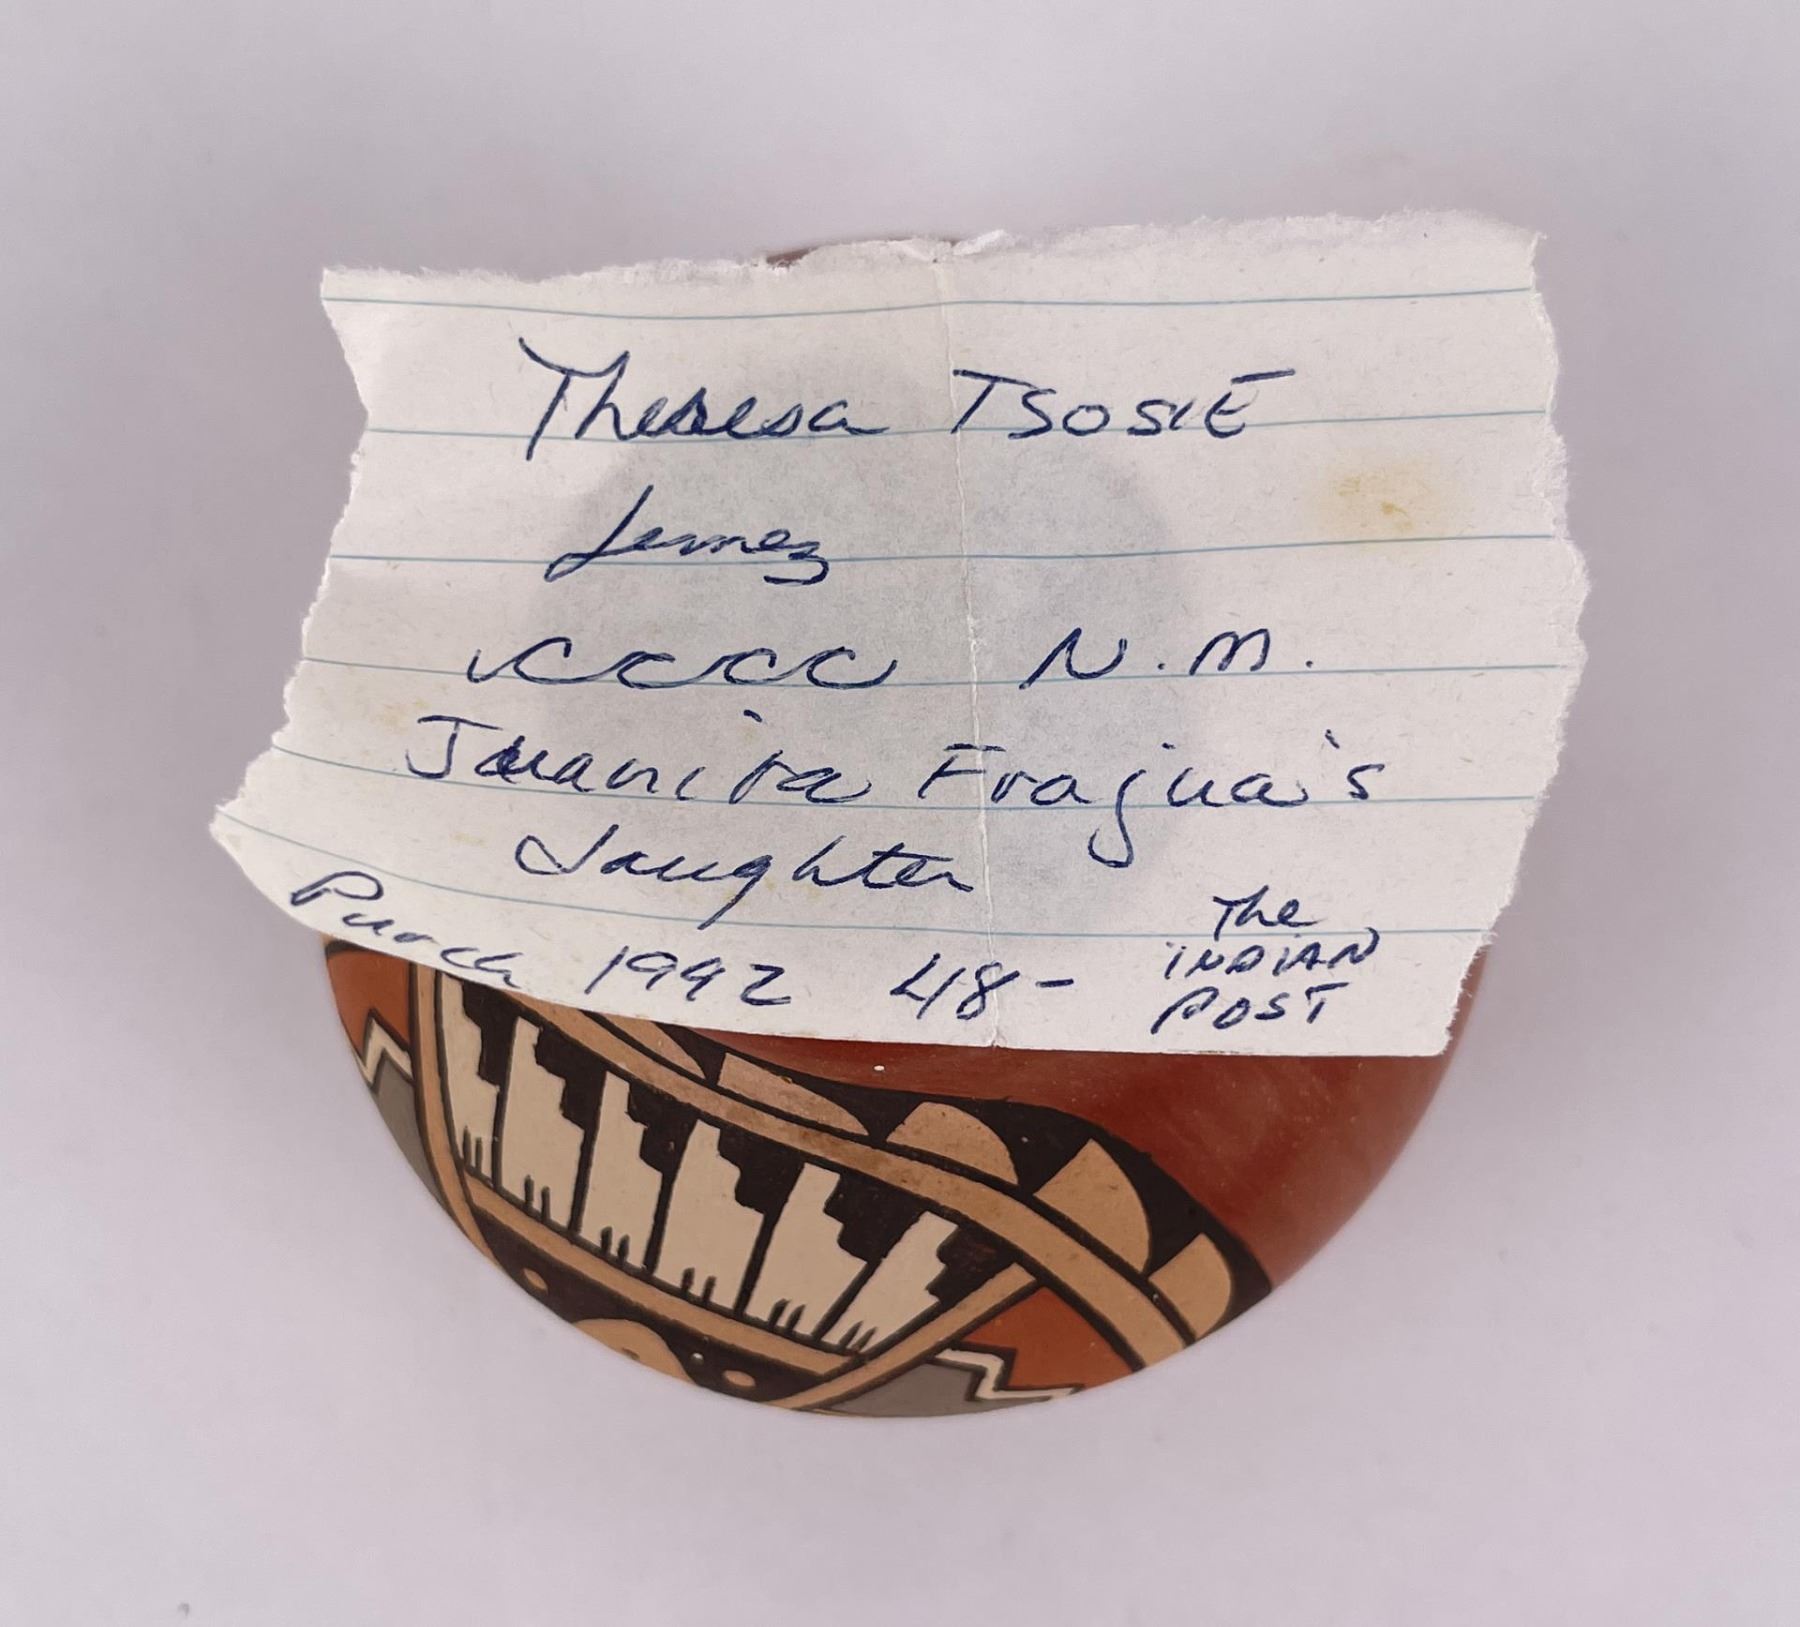 Theresa TSOSIE
Jemez
N.M.
Juanita Fragua's
daughter
Purch 1992 48-
The
INDIAN
POST